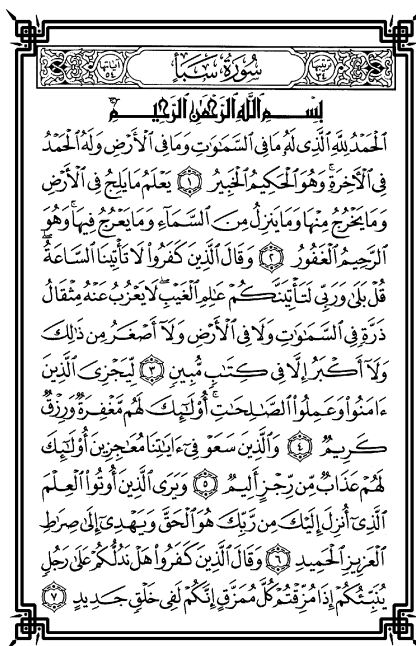 ترتيبها ٣٤ سُورَةُ سَبَإٍ آياتها ٥٤
بِسْمِ ٱللَّهِ ٱلرَّحْمَٰنِ ٱلرَّحِيمِ
ٱلْحَمْدُ لِلَّهِ ٱلَّذِى لَهُۥ مَا فِى ٱلسَّمَٰوَٰتِ وَمَا فِى ٱلْأَرْضِ وَلَهُ ٱلْحَمْدُ
فِى ٱلْأَخِرَةِۚ وَهُوَ ٱلْحَكِيمُ ٱلْخَبِيرُ ١ يَعْلَمُ مَا يَلِجُ فِى ٱلْأَرْضِ
وَمَا يَخْرُجُ مِنْهَا وَمَا يَنزِلُ مِنَ ٱلسَّمَآءِ وَمَا يَعْرُجُ فِيهَاۚ وَهُوَ
ٱلرَّحِيمُ ٱلْغَفُورُ ٢ وَقَالَ ٱلَّذِينَ كَفَرُوا۟ لَا تَأْتِينَا ٱلسَّاعَةُۖ
قُلْ بَلَىٰ وَرَبِّى لَتَأْتِيَنَّكُمْ عَٰلِمِ ٱلْغَيْبِۖ لَا يَعْزُبُ عَنْهُ مِثْقَالُ
ذَرَّةٍ فِى ٱلسَّمَٰوَٰتِ وَلَا فِى ٱلْأَرْضِ وَلَآ أَصْغَرُ مِن ذَٰلِكَ
وَلَآ أَكْبَرُ إِلَّا فِى كِتَٰبٍ مُّبِينٍ ٣ لِّيَجْزِىَ ٱلَّذِينَ
ءَامَنُوا۟ وَعَمِلُوا۟ ٱلصَّٰلِحَٰتِۚ أُو۟لَٰٓئِكَ لَهُم مَّغْفِرَةٌ وَرِزْقٌ
كَرِيمٌ ٤ وَٱلَّذِينَ سَعَوْ فِىٓ ءَايَٰتِنَا مُعَٰجِزِينَ أُو۟لَٰٓئِكَ
لَهُمْ عَذَابٌ مِّن رِّجْزٍ أَلِيمٌ ٥ وَيَرَى ٱلَّذِينَ أُوتُوا۟ ٱلْعِلْمَ
ٱلَّذِىٓ أُنزِلَ إِلَيْكَ مِن رَّبِّكَ هُوَ ٱلْحَقَّ وَيَهْدِىٓ إِلَىٰ صِرَٰطِ
ٱلْعَزِيزِ ٱلْحَمِيدِ ٦ وَقَالَ ٱلَّذِينَ كَفَرُوا۟ هَلْ نَدُلُّكُمْ عَلَىٰ رَجُلٍ
يُنَبِّئُكُمْ إِذَا مُزِّقْتُمْ كُلَّ مُمَزَّقٍ إِنَّكُمْ لَفِى خَلْقٍ جَدِيدٍ ٧